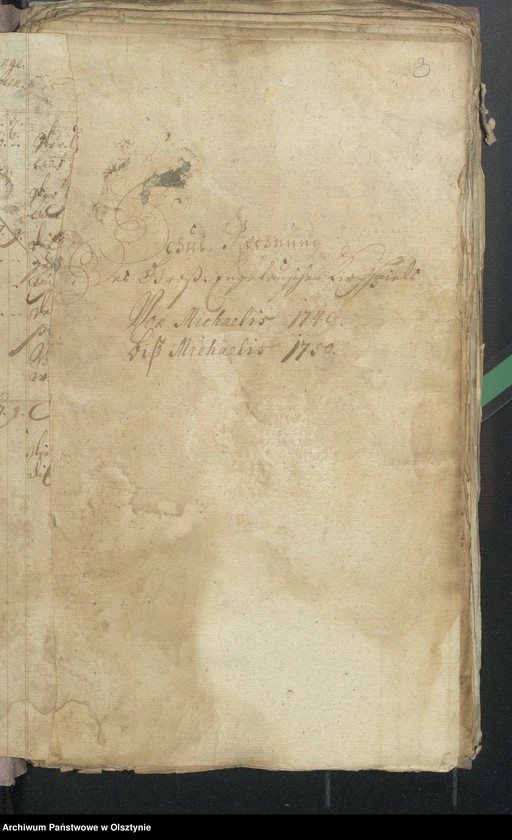 3
Schul-Rechnung
Des Groß-Engelauischen Kirchspiels
Von Michaelis 1749.
biß Michaelis 1750.
Archiwum Państwowe w Olsztynie